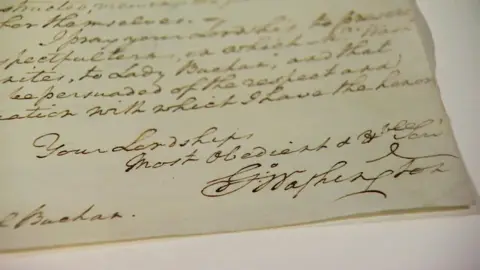 for themselves.
I pray your Lordship to
spectful terms, in which Mrs. Wash
nites, to Lady Buchan, and that
be persuaded of the respect and
ection with which I have the honor
Your Lordships
Most Obedient & Hble Ser
Go. Washington
Buchan.